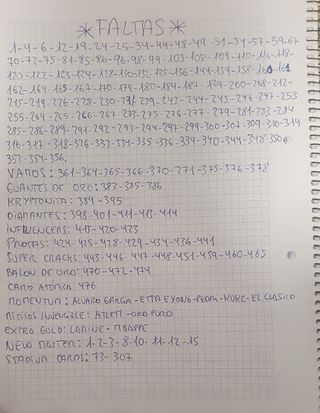 *FALTAS*
1-4-6-12-19-24-25-34-44-48-49-51-54-57-59-67
70-72-75-81-85-86-96-98-99-103-108-109-110-116-118-
120-122-123-124-128-130-132-135-136-144-154-158-160-161
162-164-165-167-170-179-180-184-187-194-200-208-212-
215-219-226-228-230-231-239-243-244-245-246-247-253
255-264-265-266-267-273-275-276-277-279-281-283-284
285-286-289-291-292-293-294-297-299-300-307-309-310-314
316-317-318-326-333-334-335-336-339-340-344-348-350
352-354-356,
VAROS: 361-364-365-366-370-371-375-376-378
GUANTES DE ORO: 383-385-386
KRYPTONITA: 389-395
DIAMANTES: 398-401-411-413-414
INFLUENCERS: 415-420-423
PROTAS: 424-425-428-429-434-436-441
SUPER CRACKS: 443-446-447-448-451-459-460-465
BALON DE ORO: 470-472-474
CARD ATOMICA 476
MOMENTUM: ALVARO GARCIA-ETTA EYONG-PEDRI-KOKE-EL CLASICO
MITICOS INVENCIBLE: ATLETI-ORO PURO
EXTRA GOLD: LAMINE-MBAPPE
NEW MASTER: 1-2-3-8-10-11-12-15
STADIUM CARDS: 73-307